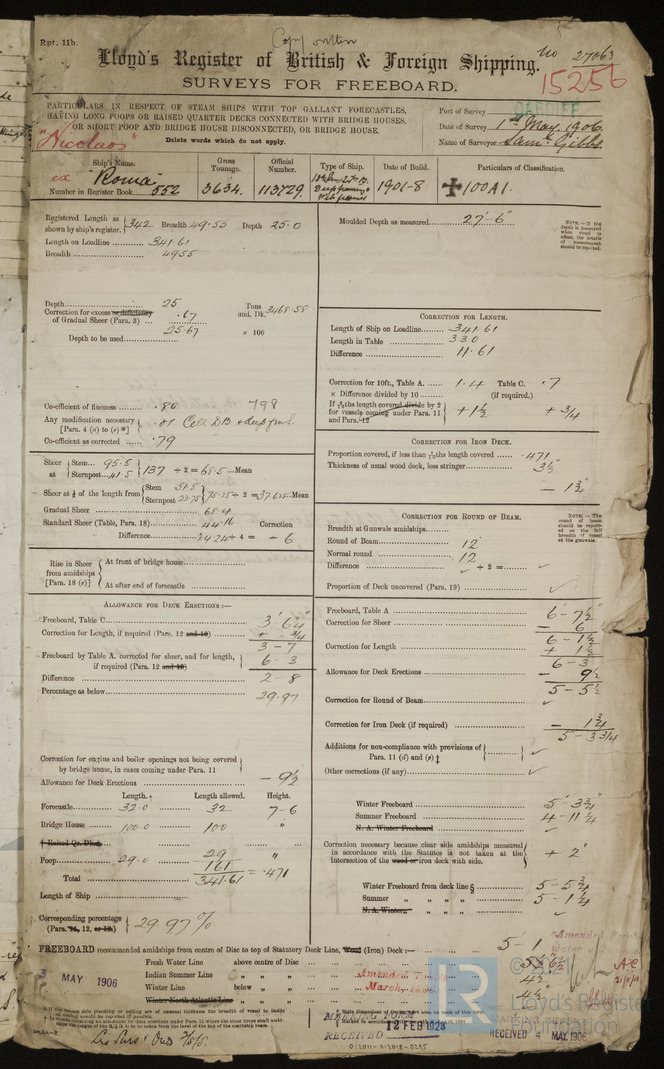 Rpt. 11b.
Copy written
Lloyd's Register of British & Foreign Shipping.
No 27063
SURVEYS FOR FREEBOARD.
15256
PARTICULARS IN RESPECT OF STEAM SHIPS WITH TOP GALLANT FORECASTLES,
HAVING LONG POOPS OR RAISED QUARTER DECKS CONNECTED WITH BRIDGE HOUSES,
OR SHORT POOP AND BRIDGE HOUSE DISCONNECTED, OR BRIDGE HOUSE.
Delete words which do not apply.
Port of Survey CARDIFF
Date of Survey 1st May. 1906
Name of Surveyor Saml. Gibbs
"Nicolaos"
Ship's Name. Gross Tonnage. Official Number. Type of Ship. Date of Build. Particulars of Classification.
ex "Roma"
Number in Register Book 552 3634. 113729. 1901-8 100A1.
Registered Length as shown by ship's register. 342 Breadth 49.55 Depth 25.0
Length on Loadline 341.61
Breadth 49.55
Depth 25
Correction for excess or deficiency of Gradual Sheer (Para. 3) .67
Tons und. Dk. 3468.58
Depth to be used 25.67 × 100
Co-efficient of fineness .80 798
Any modification necessary [Para. 4 (a) to (e)*] .01 Cell DB
Co-efficient as corrected .79
Sheer at Stem 95.5 Sternpost 41.5 137 ÷ 2 = 68.5 Mean
Sheer at 1/8 of the length from Stem 51.5 Sternpost 23.75 75.25 ÷ 2 = 37.625 Mean
Gradual Sheer 68.4
Standard Sheer (Table, Para. 18) 44.16 Correction
Difference 24.24 ÷ 4 = - 6
Rise in Sheer from amidships [Para. 18 (e)]
At front of bridge house
At after end of forecastle
ALLOWANCE FOR DECK ERECTIONS:—
Freeboard, Table C 3' 6¼"
Correction for Length, if required (Para. 12 and 13) + ¾
3 - 7
Freeboard by Table A, corrected for sheer, and for length, if required (Para. 12 and 13) 6 - 3
Difference 2 - 8
Percentage as below 29.97
Correction for engine and boiler openings not being covered by bridge house, in cases coming under Para. 11
Allowance for Deck Erections - 9½
Length. Length allowed. Height.
Forecastle 32.0 32 7-6
Bridge House 100.0 100 "
† Raised Qr. Dk.
Poop 29.0 29 "
Total 161
341.61 = .471
Length of Ship
Corresponding percentage (Paras. 11, 12, or 13) 29.97%
Moulded Depth as measured 27'-6"
NOTE.—If the depth is measured when vessel is afloat, the details of measurement should be reported.
CORRECTION FOR LENGTH.
Length of Ship on Loadline 341.61
Length in Table 330
Difference 11.61
Correction for 10ft., Table A. 1.4 Table C. .7
× Difference divided by 10 (if required.)
If 6/10ths length covered divide by 2 for vessels coming under Para. 11 and Para. 12 + 1½ + ¾
CORRECTION FOR IRON DECK.
Proportion covered, if less than 7/10ths length covered .471
Thickness of usual wood deck, less stringer 3½"
- 1¾"
CORRECTION FOR ROUND OF BEAM.
Breadth at Gunwale amidships
Round of Beam 12"
Normal round 12
Difference ÷ 2 =
Proportion of Deck uncovered (Para. 19)
NOTE.—The round of beam should be reported on the full breadth of vessel at the gunwale.
Freeboard, Table A 6'-7½"
Correction for Sheer - 6
6 - 1½
Correction for Length + 1½
6 - 3
Allowance for Deck Erections - 9½
5 - 5½
Correction for Round of Beam
Correction for Iron Deck (if required) - 1¾
5 - 3¾
Additions for non-compliance with provisions of Para. 11 (d) and (e) ‡
Other corrections (if any)
Winter Freeboard 5'-3¾"
Summer Freeboard 4-11¼
N. A. Winter Freeboard
Correction necessary because clear side amidships measured in accordance with the Statutes is not taken at the intersection of the wood or iron deck with side. + 2"
Winter Freeboard from deck line § 5-5¾
Summer " " " " 5-1¼
N. A. Winter
FREEBOARD recommended amidships from centre of Disc to top of Statutory Deck Line, Wood (Iron) Deck:— 5-1
Fresh Water Line above centre of Disc
Indian Summer Line " " "
Winter Line below " "
Winter North Atlantic Line " " "
3 MAY 1906
Amended
March,
MARKING FORM
RECEIVED 12 FEB 1923
RECEIVED 4 MAY. 1906
012011-012018-0295
© 
LR
Lloyd's Register
Foundation